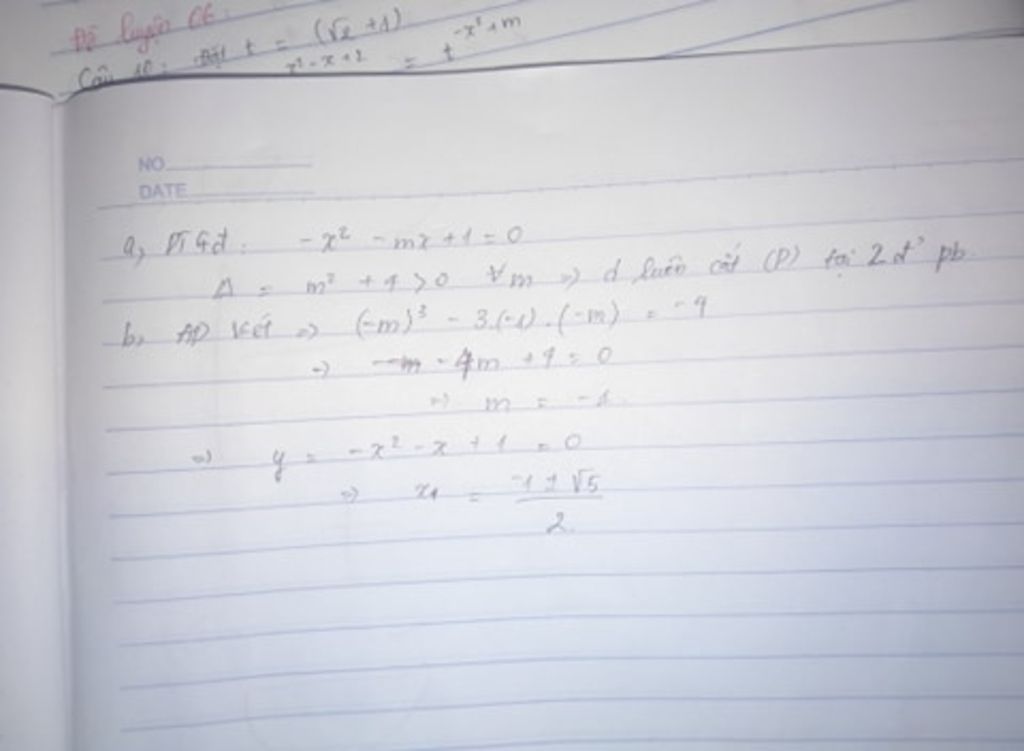 Đề luyện 06.
Câu 10: Đặt t = (√2 + 1)
x² - x + 2 = t^{-x³ + m}
NO
DATE
a, PT Gđ: -x² - mx + 1 = 0
Δ = m² + 4 > 0 ∀m => d luôn cắt (P) tại 2 đ' pb
b, AD Viét => (-m)³ - 3.(-1).(-m) = -4
=> - 4m + 4 = 0
=> m = -1.
=> y = -x² - x + 1 = 0
=> x₁ = (-1 ± √5)/2.